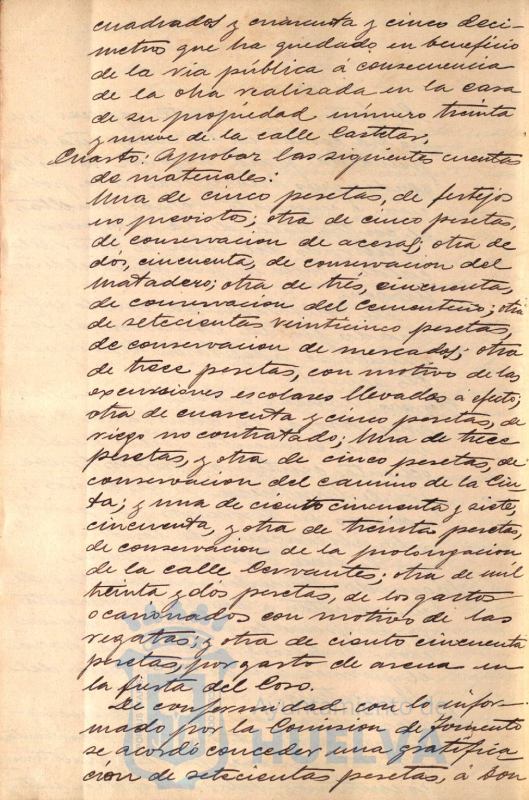 cuadrados y cuarenta y cinco deci-
metros que ha quedado en beneficio
de la via pública á consecuencia
de la obra realizada en la casa
de su propiedad número treinta
y nueve de la calle Castelar.
Cuarto: Aprobar las siguientes cuentas
de materiales:
Una de cinco pesetas, de festejos
no previstos; otra de cinco pesetas,
de conservacion de aceras; otra de
dós, cincuenta, de conservacion del
Matadero; otra de trés, cincuenta,
de conservacion del Cementerio; otra
de setecientas veinticinco pesetas,
de conservacion de mercados; otra
de trece pesetas, con motivo de las
excursiones escolares llevadas á efecto;
otra de cuarenta y cinco pesetas, de
riego no contratado; Una de trece
pesetas, y otra de cinco pesetas, de
conservacion del camino de la Cin-
ta; y una de ciento cincuenta y siete,
cincuenta, y otra de treinta pesetas,
de conservacion de la prolongacion
de la calle Cervantes; otra de mil
treinta y dós pesetas, de los gastos
ocasionados con motivo de las
regatas; y otra de ciento cincuenta
pesetas, por gasto de arena en
la fiesta del Coso.
De conformidad con lo infor-
mado por la Comision de Fomento
se acordó conceder una gratifica
ción de setecientas pesetas, á Don
Ayuntamiento de
HUELVA